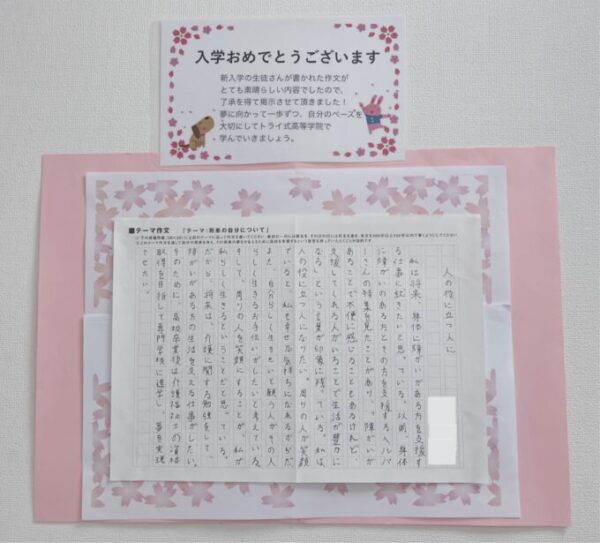 入学おめでとうございます
新入学の生徒さんが書かれた作文が
とても素晴らしい内容でしたので、
了承を得て掲示させて頂きました！
夢に向かって一歩ずつ、自分のペースを
大切にしてトライ式高等学院で
学んでいきましょう。
■テーマ作文 「テーマ：将来の自分について」
人の役に立つ人に
私は将来、身体に障がいがある方を支援す
る仕事に就きたいと思っている。以前、身体
に障がいのある方とその方を支援するヘルパ
ーさんの特集を見たことがあり、「障がいが
あることで不便に感じることもあるけれど、
支援してくれる人がいることで生活が豊かに
なる」という言葉が印象に残っている。私は、
人の役に立つ人になりたい。周りの人が笑顔
でいると、私も幸せな気持ちになるからだ。
また、自分らしく生きたいと願う人がその人
らしく生きるお手伝いがしたいと考えている。
そして、周りの人を笑顔にすることが、私が
私らしく生きるということだと思っている。
だから、将来は、介護に関する勉強をして、
障がいがある方の生活を支える仕事がしたい。
そのために、高校卒業後は介護福祉士の資格
取得を目指して専門学校に進学し、夢を実現
させたい。